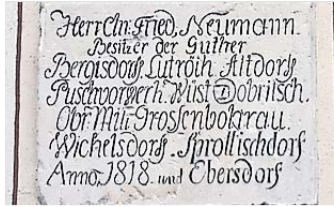 Herr Chr: Fried, Neumann.
Besitzer der Güther
Bergisdorf, Lutröth, Altdorf,
Puschvorwerk. Wüst Dobritsch.
Obr: Mül: Grossenbohrau.
Wichelsdorf. Sprottischdorf
Anno, 1818. und Ebersdorf